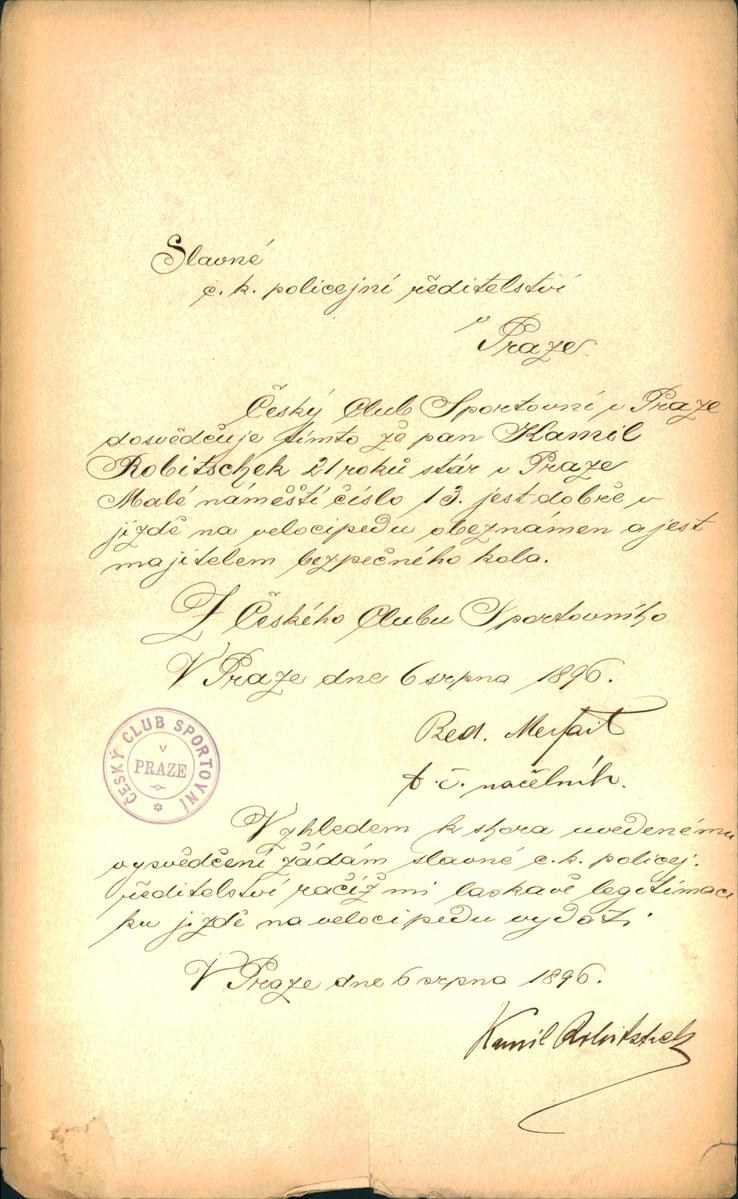 Slavné
c. k. policejní ředitelství
v Praze.
Český Club Sportovní v Praze
dosvědčuje tímto že pan Kamil
Robitschek 21 roků stár v Praze
Malé náměstí číslo 13. jest dobře v
jízdě na velocipedu obeznámen a jest
majitelem bezpečného kola.
Z Českého Clubu Sportovního
V Praze dne 6 srpna 1896.
ČESKÝ CLUB SPORTOVNÍ
V
PRAZE
t. č. náčelník.
Vzhledem k shora uvedenému
vysvědčení žádám slavné c. k. policej.
ředitelství račiž mi laskavě legitimaci
ku jízdě na velocipedu vydati.
V Praze dne 6 srpna 1896.
Kamil Robitschek